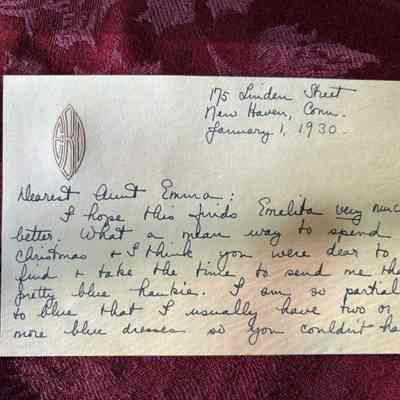 175 Linden Street
New Haven, Conn.
January 1, 1930.
Dearest Aunt Emma:
I hope this finds Emelita very muc
better. What a mean way to spend
Christmas & I think you were dear to
find & take the time to send me tha
pretty blue hankie. I am so partial
to blue that I usually have two or
more blue dresses so you couldn't ha